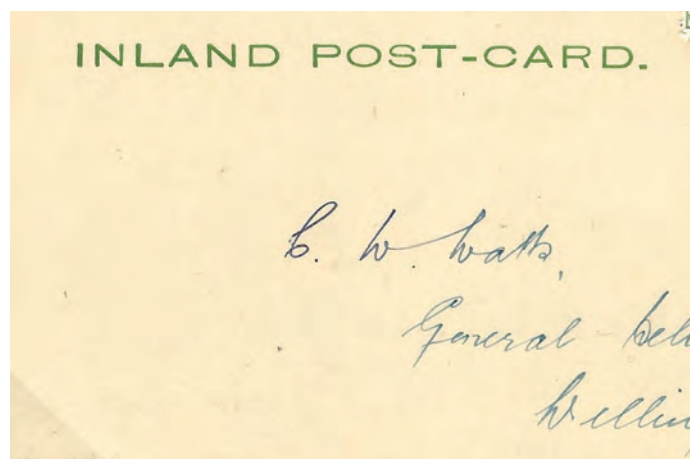 INLAND POST-CARD.
C. W. Watts,
General Deli
Welling